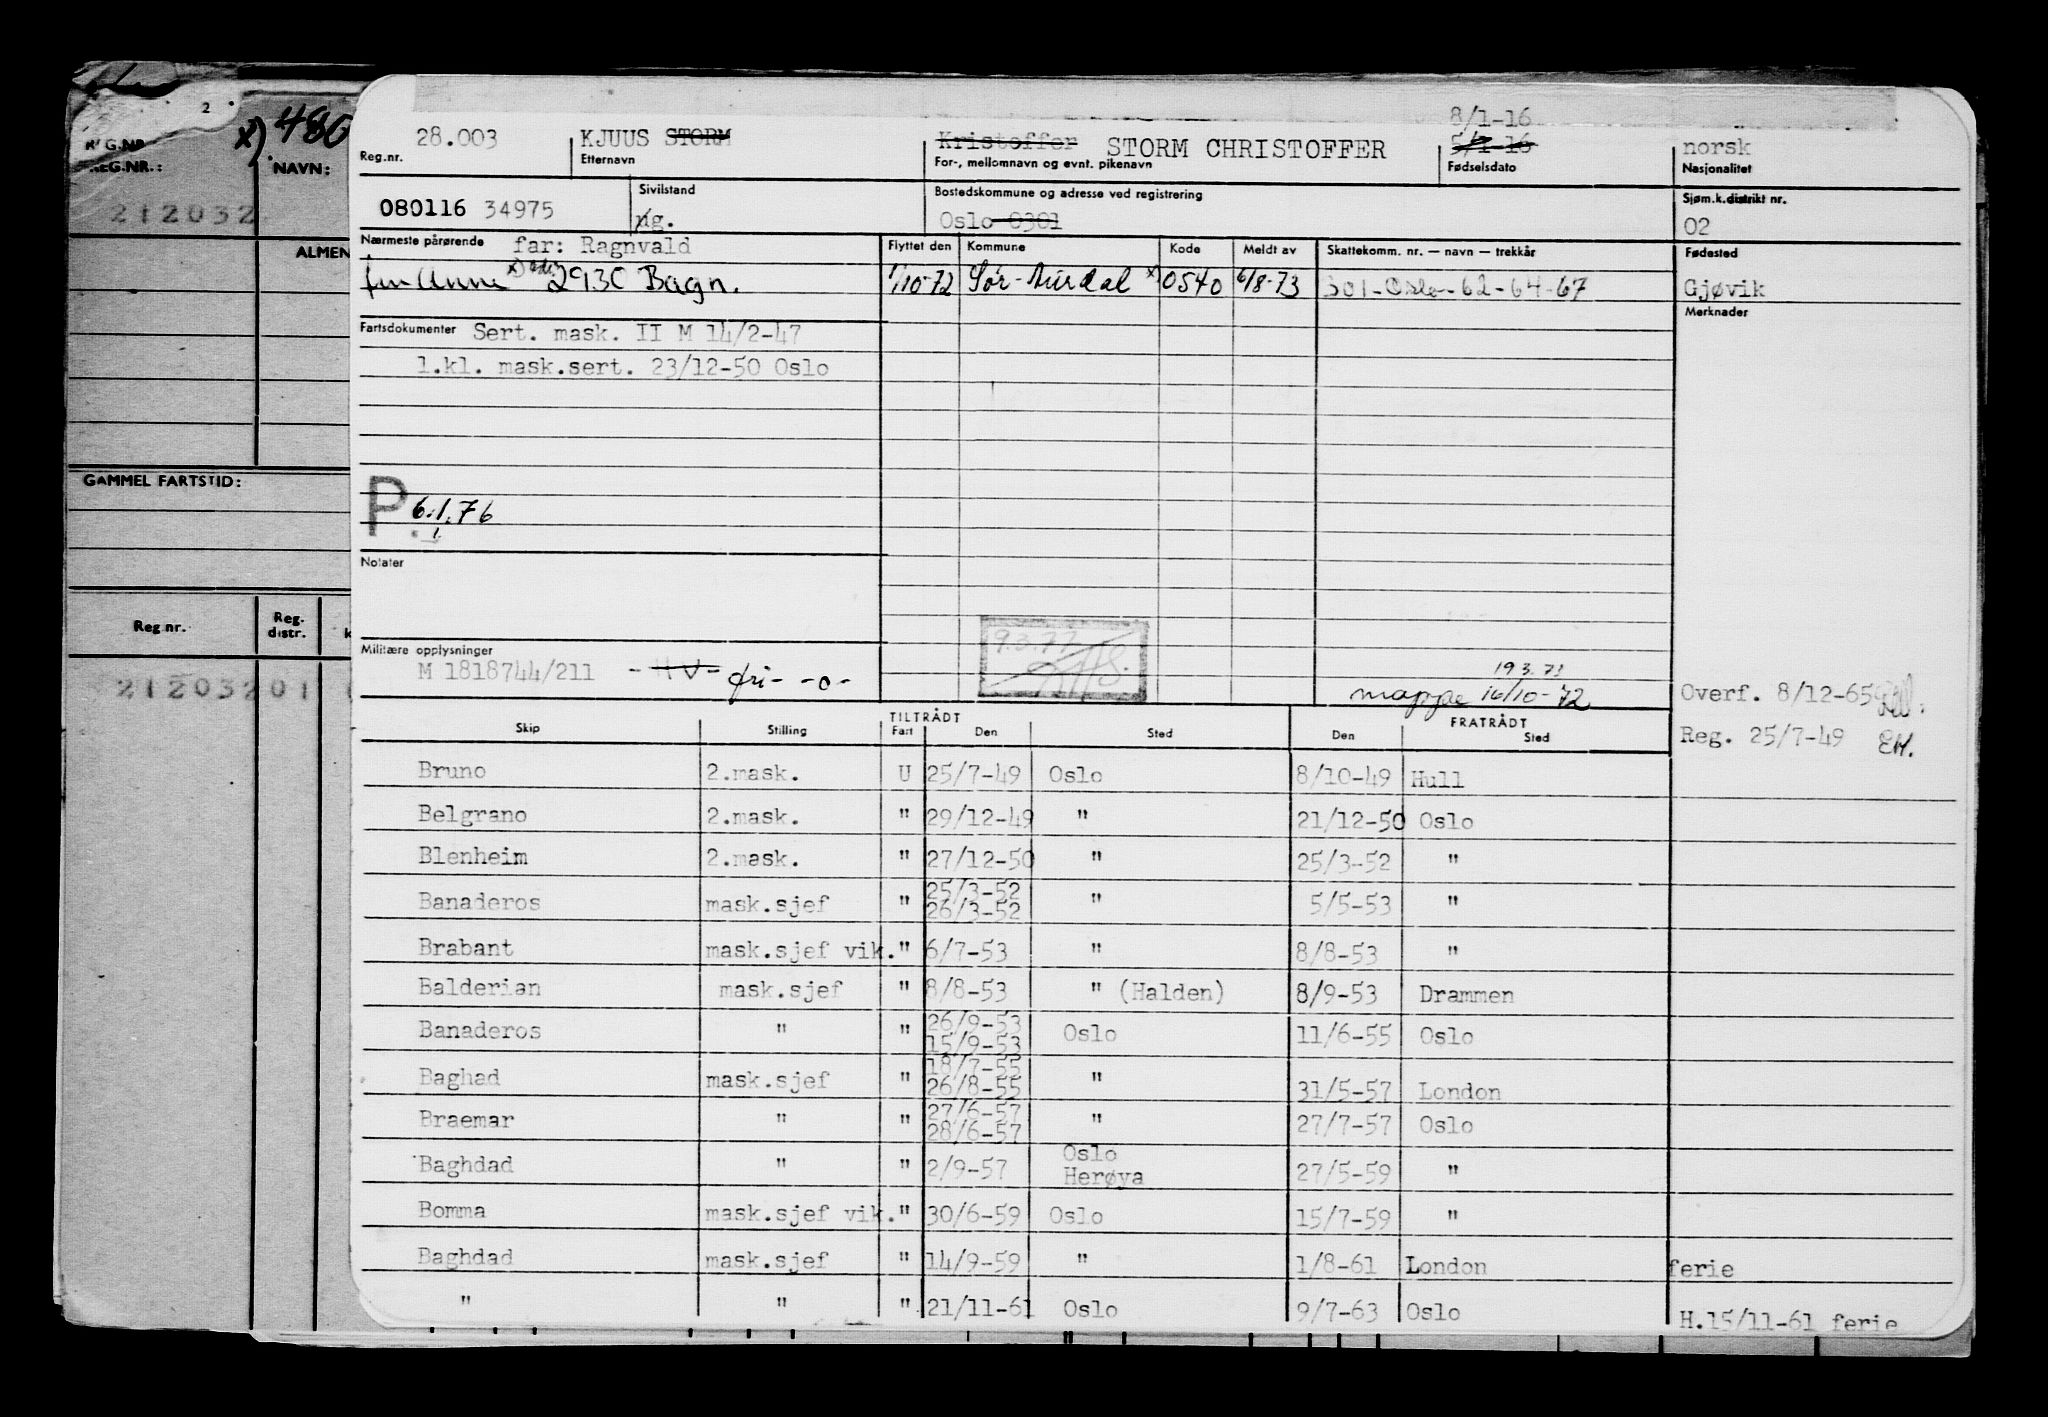 2
x) 480
REG.NR.:
NAVN:
212032
ALMEN
GAMMEL FARTSTID:
Reg.nr.
Reg. distr.
k
21203201
28.003
Reg.nr.
KJUUS STORM
Etternavn
Kristoffer STORM CHRISTOFFER
For-, mellomnavn og evnt. pikenavn
8/1-16
5/1-16
Fødselsdato
norsk
Nasjonalitet
080116 34975
Sivilstand
ug.
Bostedskommune og adresse ved registrering
Oslo 0301
Sjøm.k.distrikt nr.
02
Nærmeste pårørende far: Ragnvald
fru Anne x) adr. 2930 Bagn.
Flyttet den Kommune Kode Meldt av Skattekomm. nr. — navn — trekkår
1/10-72 Sør-Aurdal x) 0540 6/8-73 301-Oslo-62-64-67
Fødested
Gjøvik
Merknader
Fartsdokumenter Sert. mask. II M 14/2-47
1.kl. mask.sert. 23/12-50 Oslo
P. 6.1.76
Notater
Militære opplysninger
M 1818744/211 - HV- fri- -o-
9.3.77
19.3.73
mappe 16/10-72
Overf. 8/12-65
Reg. 25/7-49 EH.
TILTRÅDT FRATRÅDT
Skip Stilling Fart Den Sted Den Sted
Bruno 2.mask. U 25/7-49 Oslo 8/10-49 Hull
Belgrano 2.mask. " 29/12-49 " 21/12-50 Oslo
Blenheim 2.mask. " 27/12-50 " 25/3-52 "
25/3-52
Banaderos mask.sjef " 26/3-52 " 5/5-53 "
Brabant mask.sjef vik." 6/7-53 " 8/8-53 "
Balderian mask.sjef " 8/8-53 " (Halden) 8/9-53 Drammen
26/9-53
Banaderos " " 15/9-53 Oslo 11/6-55 Oslo
18/7-55
Baghad mask.sjef " 26/8-55 " 31/5-57 London
27/6-57
Braemar " " 28/6-57 " 27/7-57 Oslo
Oslo
Baghdad " " 2/9-57 Herøya 27/5-59 "
Bomma mask.sjef vik." 30/6-59 Oslo 15/7-59 "
Baghdad mask.sjef " 14/9-59 " 1/8-61 London ferie
" " " 21/11-61 Oslo 9/7-63 Oslo H.15/11-61 ferie